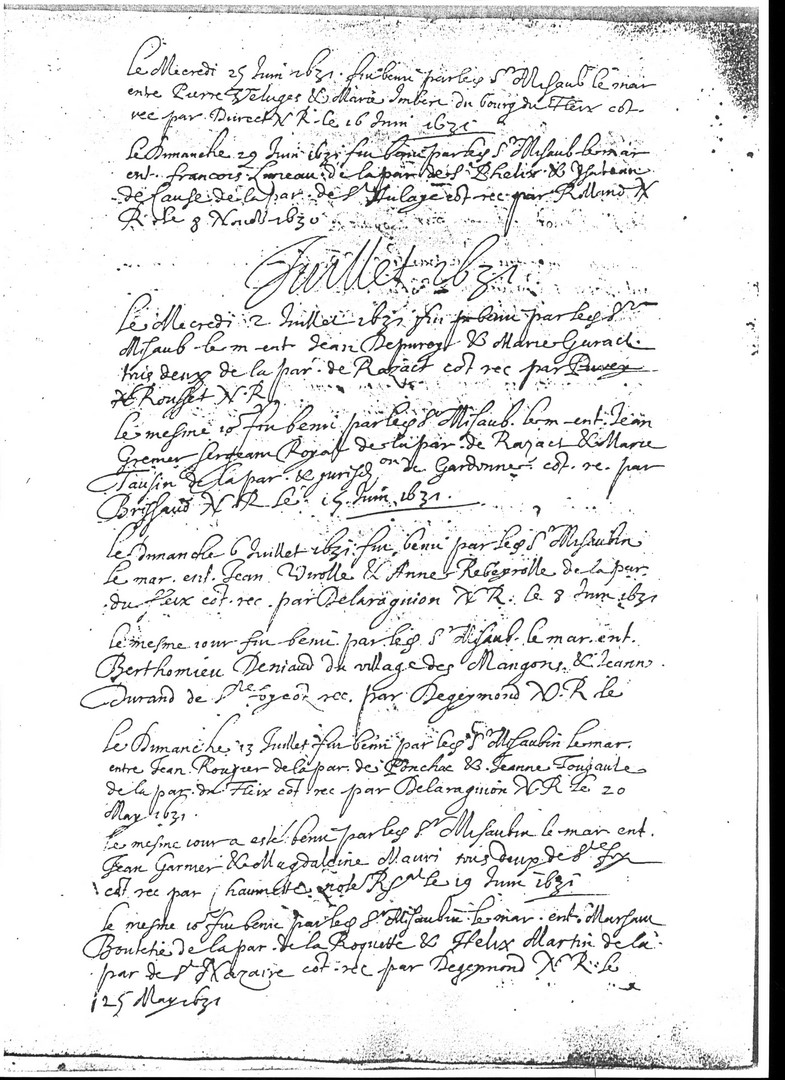 Le Mecredi 25 Juin 1631 fut beni par led Sr Misaub. le mar
entre Pierre & Marie Imbert du bourg du Fleix cot.
rec par Durect N R. le 16 Juin 1631
Le Dimanche 29 Juin 1631 fut beni par led Sr Misaub. le mar
ent. francois Lureau de la par de St Phelix & Ysabeau
de Lause de la par. de St cot rec par Rolland N
R. le 8 Novb 1630
Juillet 1631.
Le Mecredi 2 Juillet 1631 fut beni par led Sr
Misaub le m ent Jean Depuroy & Marie Guraud
tous deux de la par. de Razact cot rec par
Rousset N. R.
Le mesme io fut beni par led Sr Misaub. le m ent. Jean
Grenier sergeant Royal de la par. de Razact & Marie
Tausin de la par. & jurisdon de Gardonne. cot. re. par
Brissaud N R le 15 Juin 1631.
Le dimanche 6 Juillet 1631 fut beni par led Sr Misaubin
le mar. ent. Jean Virolle & Anne Rebeyrolle de la par.
du fleix cot. rec. par Delaragnion N R. le 8 Juin 1631
Le mesme iour fut beni par led Sr Misaub. le mar. ent.
Berthomieu Deniaud du village des Mangons & Jeann.
Durand de Ste foy cot rec. par Degeymond N. R le
Le Dimanche 13 Juillet fut beni par led Sr Misaubin le mar.
entre Jean Rougier de la par. de Ponchac & Jeanne
de la par. du Fleix cot rec par Delaragnion N R le 20
May 1631.
Le mesme iour a esté beni par led Sr Misaubin le mar ent.
Jean Garnier & Magdaleine Mauri tous deux de Ste foy
cot rec par note Ryal le 19 Juin 1631
Le mesme io fut beni par led Sr Misaubin le mar. ent. Marsau
Boutchié de la par. de la Roquette & Helix Martin de la
par de St Nazaire cot rec par Degeymond N R. le
25 May 1631